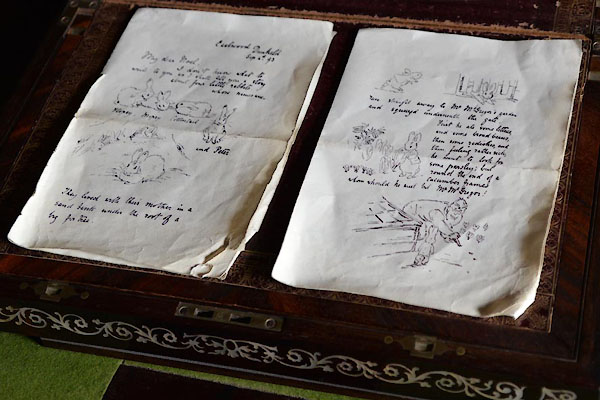 Eastwood Dunkeld
Sep 4th 93
My dear Noel,
I don't know what to
write to you, so I shall tell you a story
about four little rabbits
whose names were
Flopsy Mopsy Cottontail
and Peter
They lived with their mother in a
sand bank under the root of a
big fir tree
ran straight away to Mr McGregor's garden
and squeezed underneath the gate.
First he ate some lettuce,
and some broad beans,
then some radishes, and
then, feeling rather sick,
he went to look for
some parsley; but
round the end of a
cucumber frame
whom should he meet but Mr McGregor!